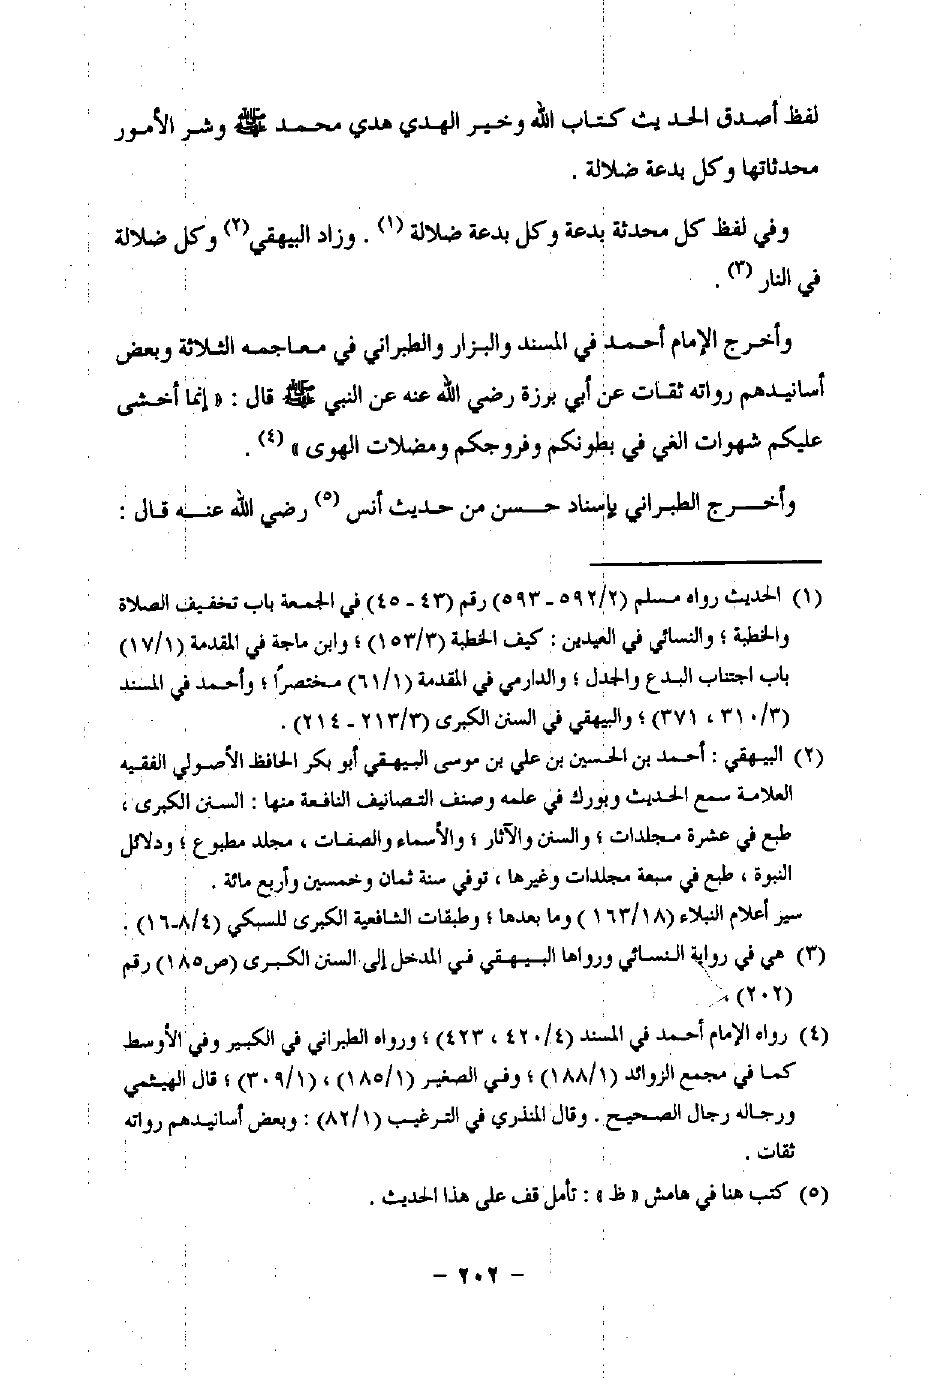 لفظ أصدق الحديث كتاب الله وخير الهدي هدي محمد ﷺ وشر الأمور
محدثاتها وكل بدعة ضلالة .
وفي لفظ كل محدثة بدعة وكل بدعة ضلالة (١) . وزاد البيهقي (٢) وكل ضلالة
في النار (٣) .
وأخرج الإمام أحمد في المسند والبزار والطبراني في معاجمه الثلاثة وبعض
أسانيدهم رواته ثقات عن أبي برزة رضي الله عنه عن النبي ﷺ قال : « إنما أخشى
عليكم شهوات الغي في بطونكم وفروجكم ومضلات الهوى » (٤) .
وأخرج الطبراني بإسناد حسن من حديث أنس (٥) رضي الله عنه قال :
(١) الحديث رواه مسلم (٥٩٢/٢ - ٥٩٣) رقم (٤٣ - ٤٥) في الجمعة باب تخفيف الصلاة
والخطبة ؛ والنسائي في العيدين : كيف الخطبة (١٥٣/٣) ؛ وابن ماجة في المقدمة (١٧/١)
باب اجتناب البدع والجدل ؛ والدارمي في المقدمة (٦١/١) مختصراً ؛ وأحمد في المسند
(٣١٠/٣ ، ٣٧١) ؛ والبيهقي في السنن الكبرى (٢١٣/٣ - ٢١٤) .
(٢) البيهقي : أحمد بن الحسين بن علي بن موسى البيهقي أبو بكر الحافظ الأصولي الفقيه
العلامة سمع الحديث وبورك في علمه وصنف التصانيف النافعة منها : السنن الكبرى ،
طبع في عشرة مجلدات ؛ والسنن والآثار ؛ والأسماء والصفات ، مجلد مطبوع ؛ ودلائل
النبوة ، طبع في سبعة مجلدات وغيرها ، توفي سنة ثمان وخمسين وأربع مائة .
سير أعلام النبلاء (١٦٣/١٨) وما بعدها ؛ وطبقات الشافعية الكبرى للسبكي (٨/٤-١٦) .
(٣) هي في رواية النسائي ورواها البيهقي في المدخل إلى السنن الكبرى (ص١٨٥) رقم
(٢٠٢) .
(٤) رواه الإمام أحمد في المسند (٤٢٠/٤ ، ٤٢٣) ؛ ورواه الطبراني في الكبير وفي الأوسط
كما في مجمع الزوائد (١٨٨/١) ؛ وفي الصغير (١٨٥/١) ، (٣٠٩/١) ؛ قال الهيثمي
ورجاله رجال الصحيح . وقال المنذري في الترغيب (٨٢/١) : وبعض أسانيدهم رواته
ثقات .
(٥) كتب هنا في هامش « ظ » : تأمل قف على هذا الحديث .
- ٢٠٢ -